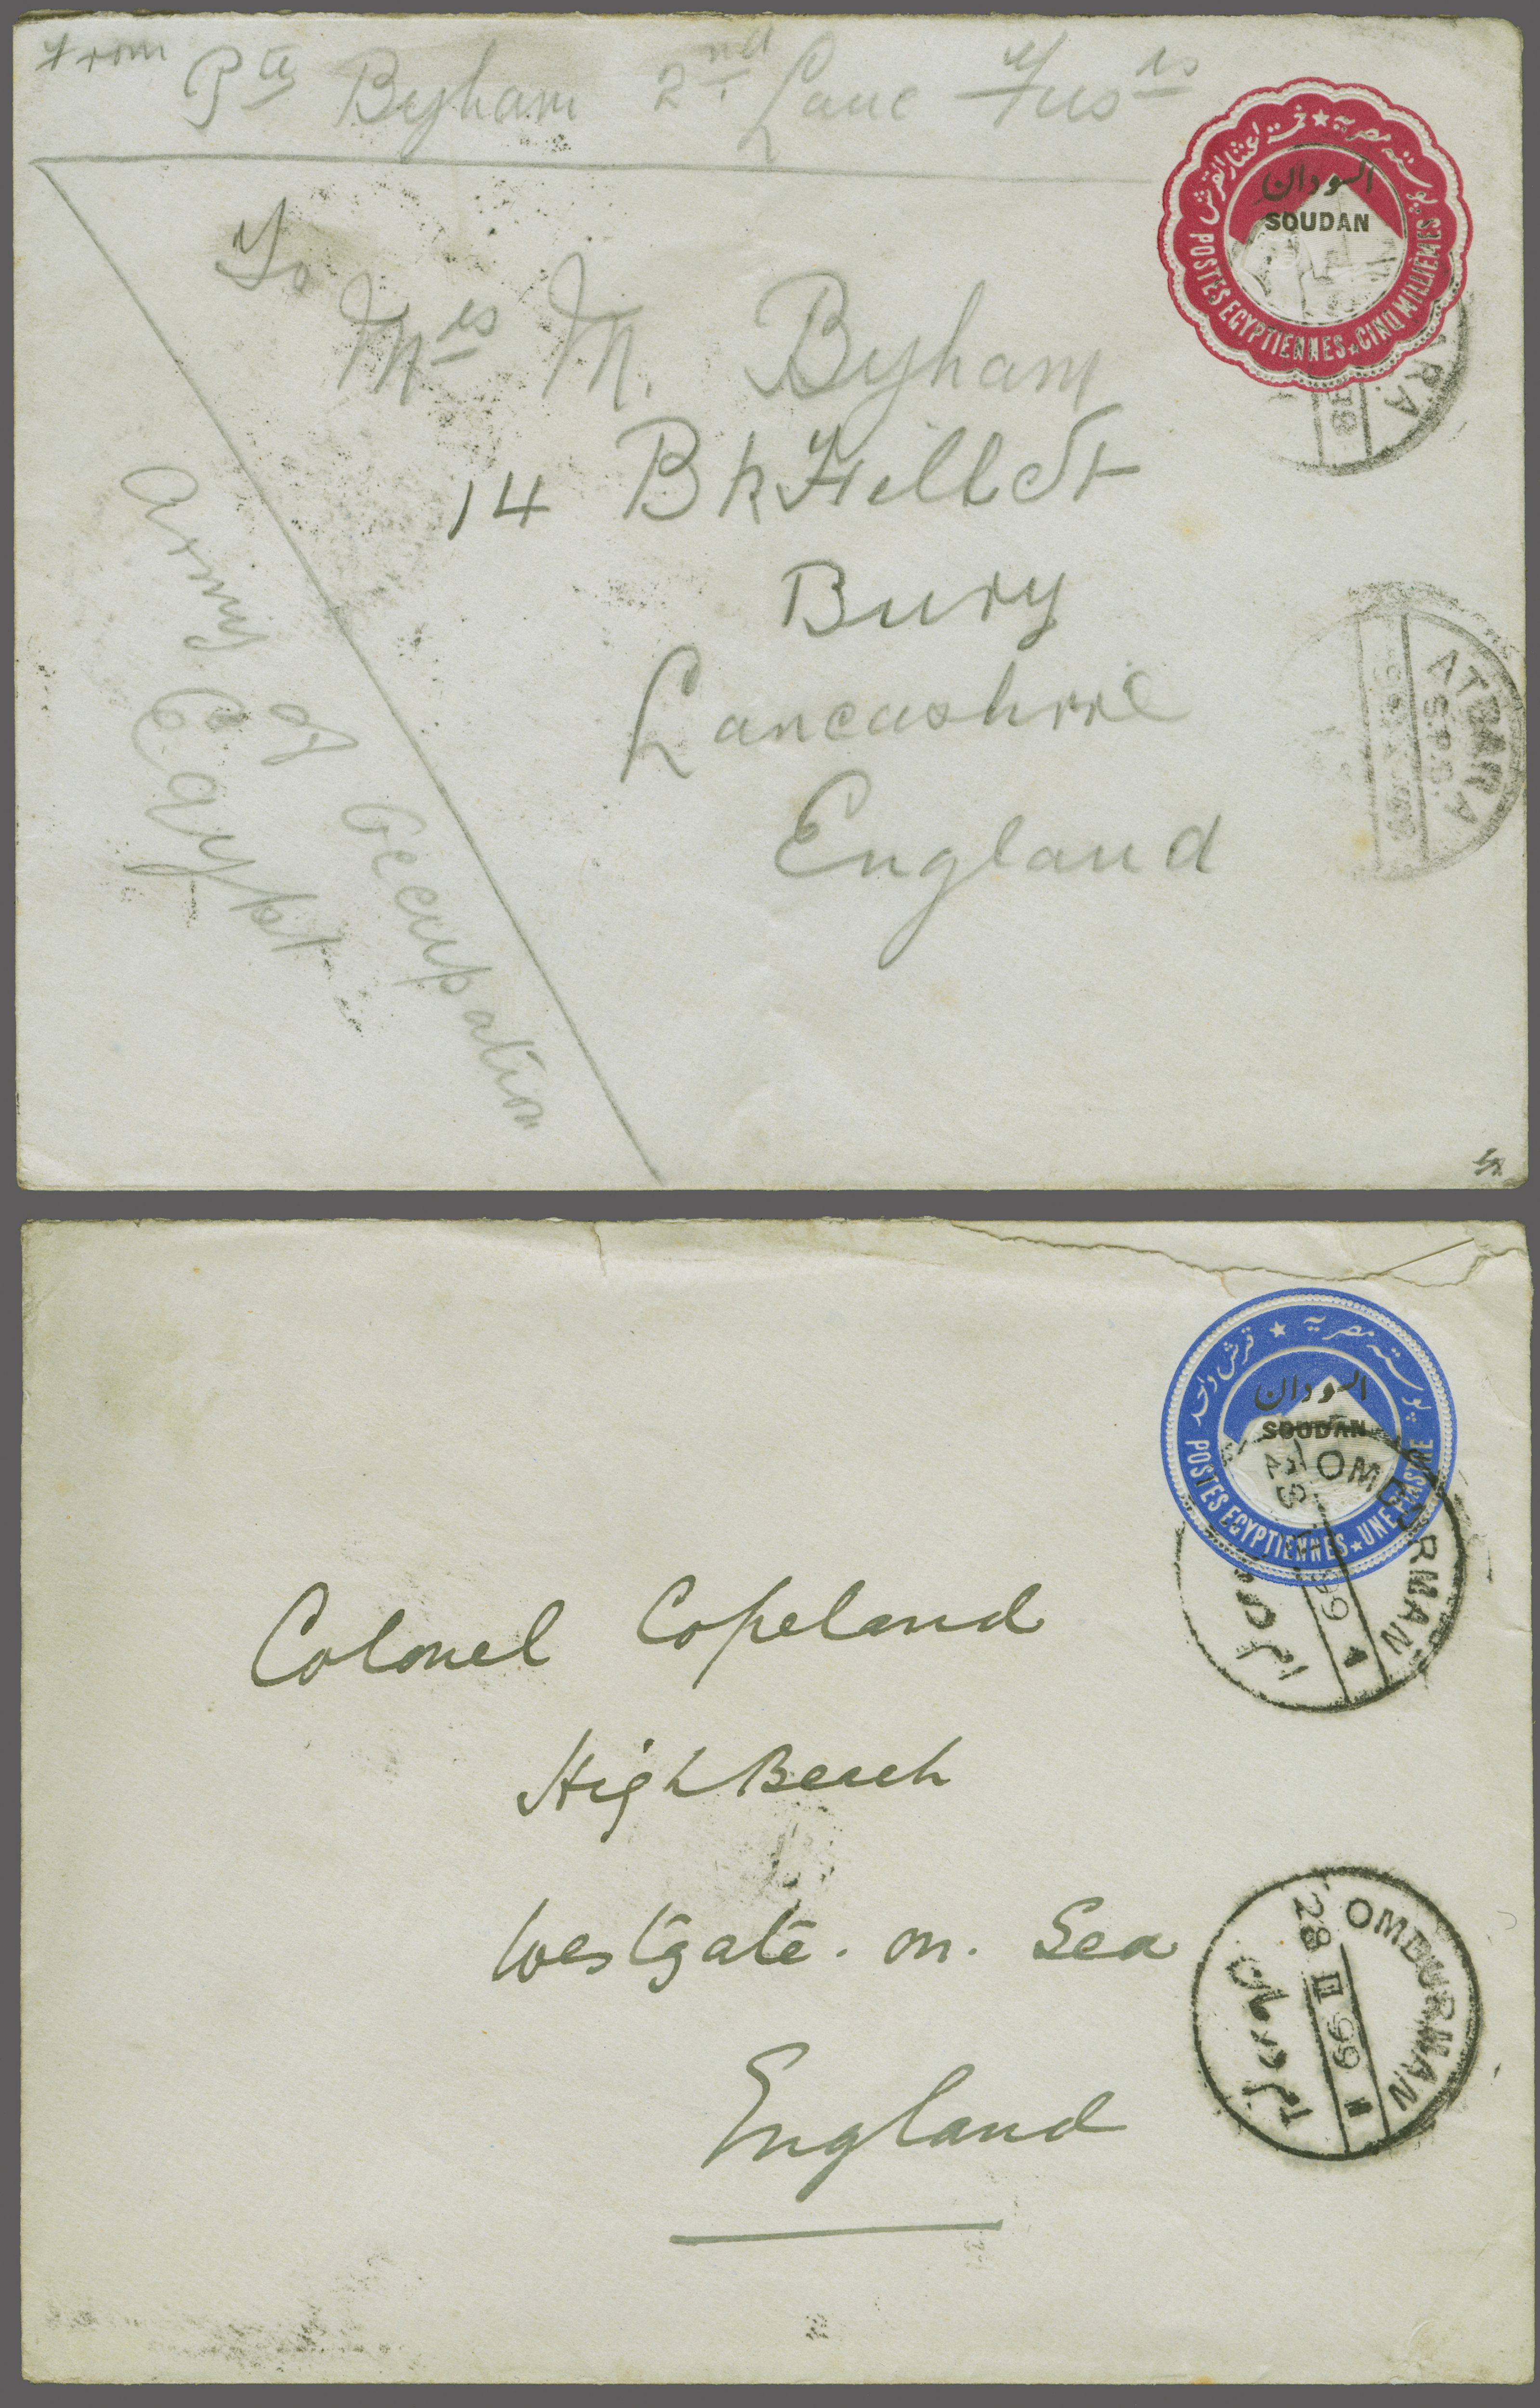 From Pte Byham 2nd Lanc Fusrs
بوستة مصرية ★ خمسة اعشار القرش
السودان
SOUDAN
POSTES EGYPTIENNES ★ CINQ MILLIÈMES
To
Mrs M. Byham
14 Bk Hill St
Bury
Lancashire
England
Army of Occupation
Egypt
ATBARA
بوستة مصرية ★ قرش واحد
السودان
SOUDAN
POSTES EGYPTIENNES ★ UNE PIASTRE
OMDURMAN
99
ام درمان
Colonel Copeland
High Beach
Westgate. on. Sea
England
OMDURMAN
28 III 99
ام درمان